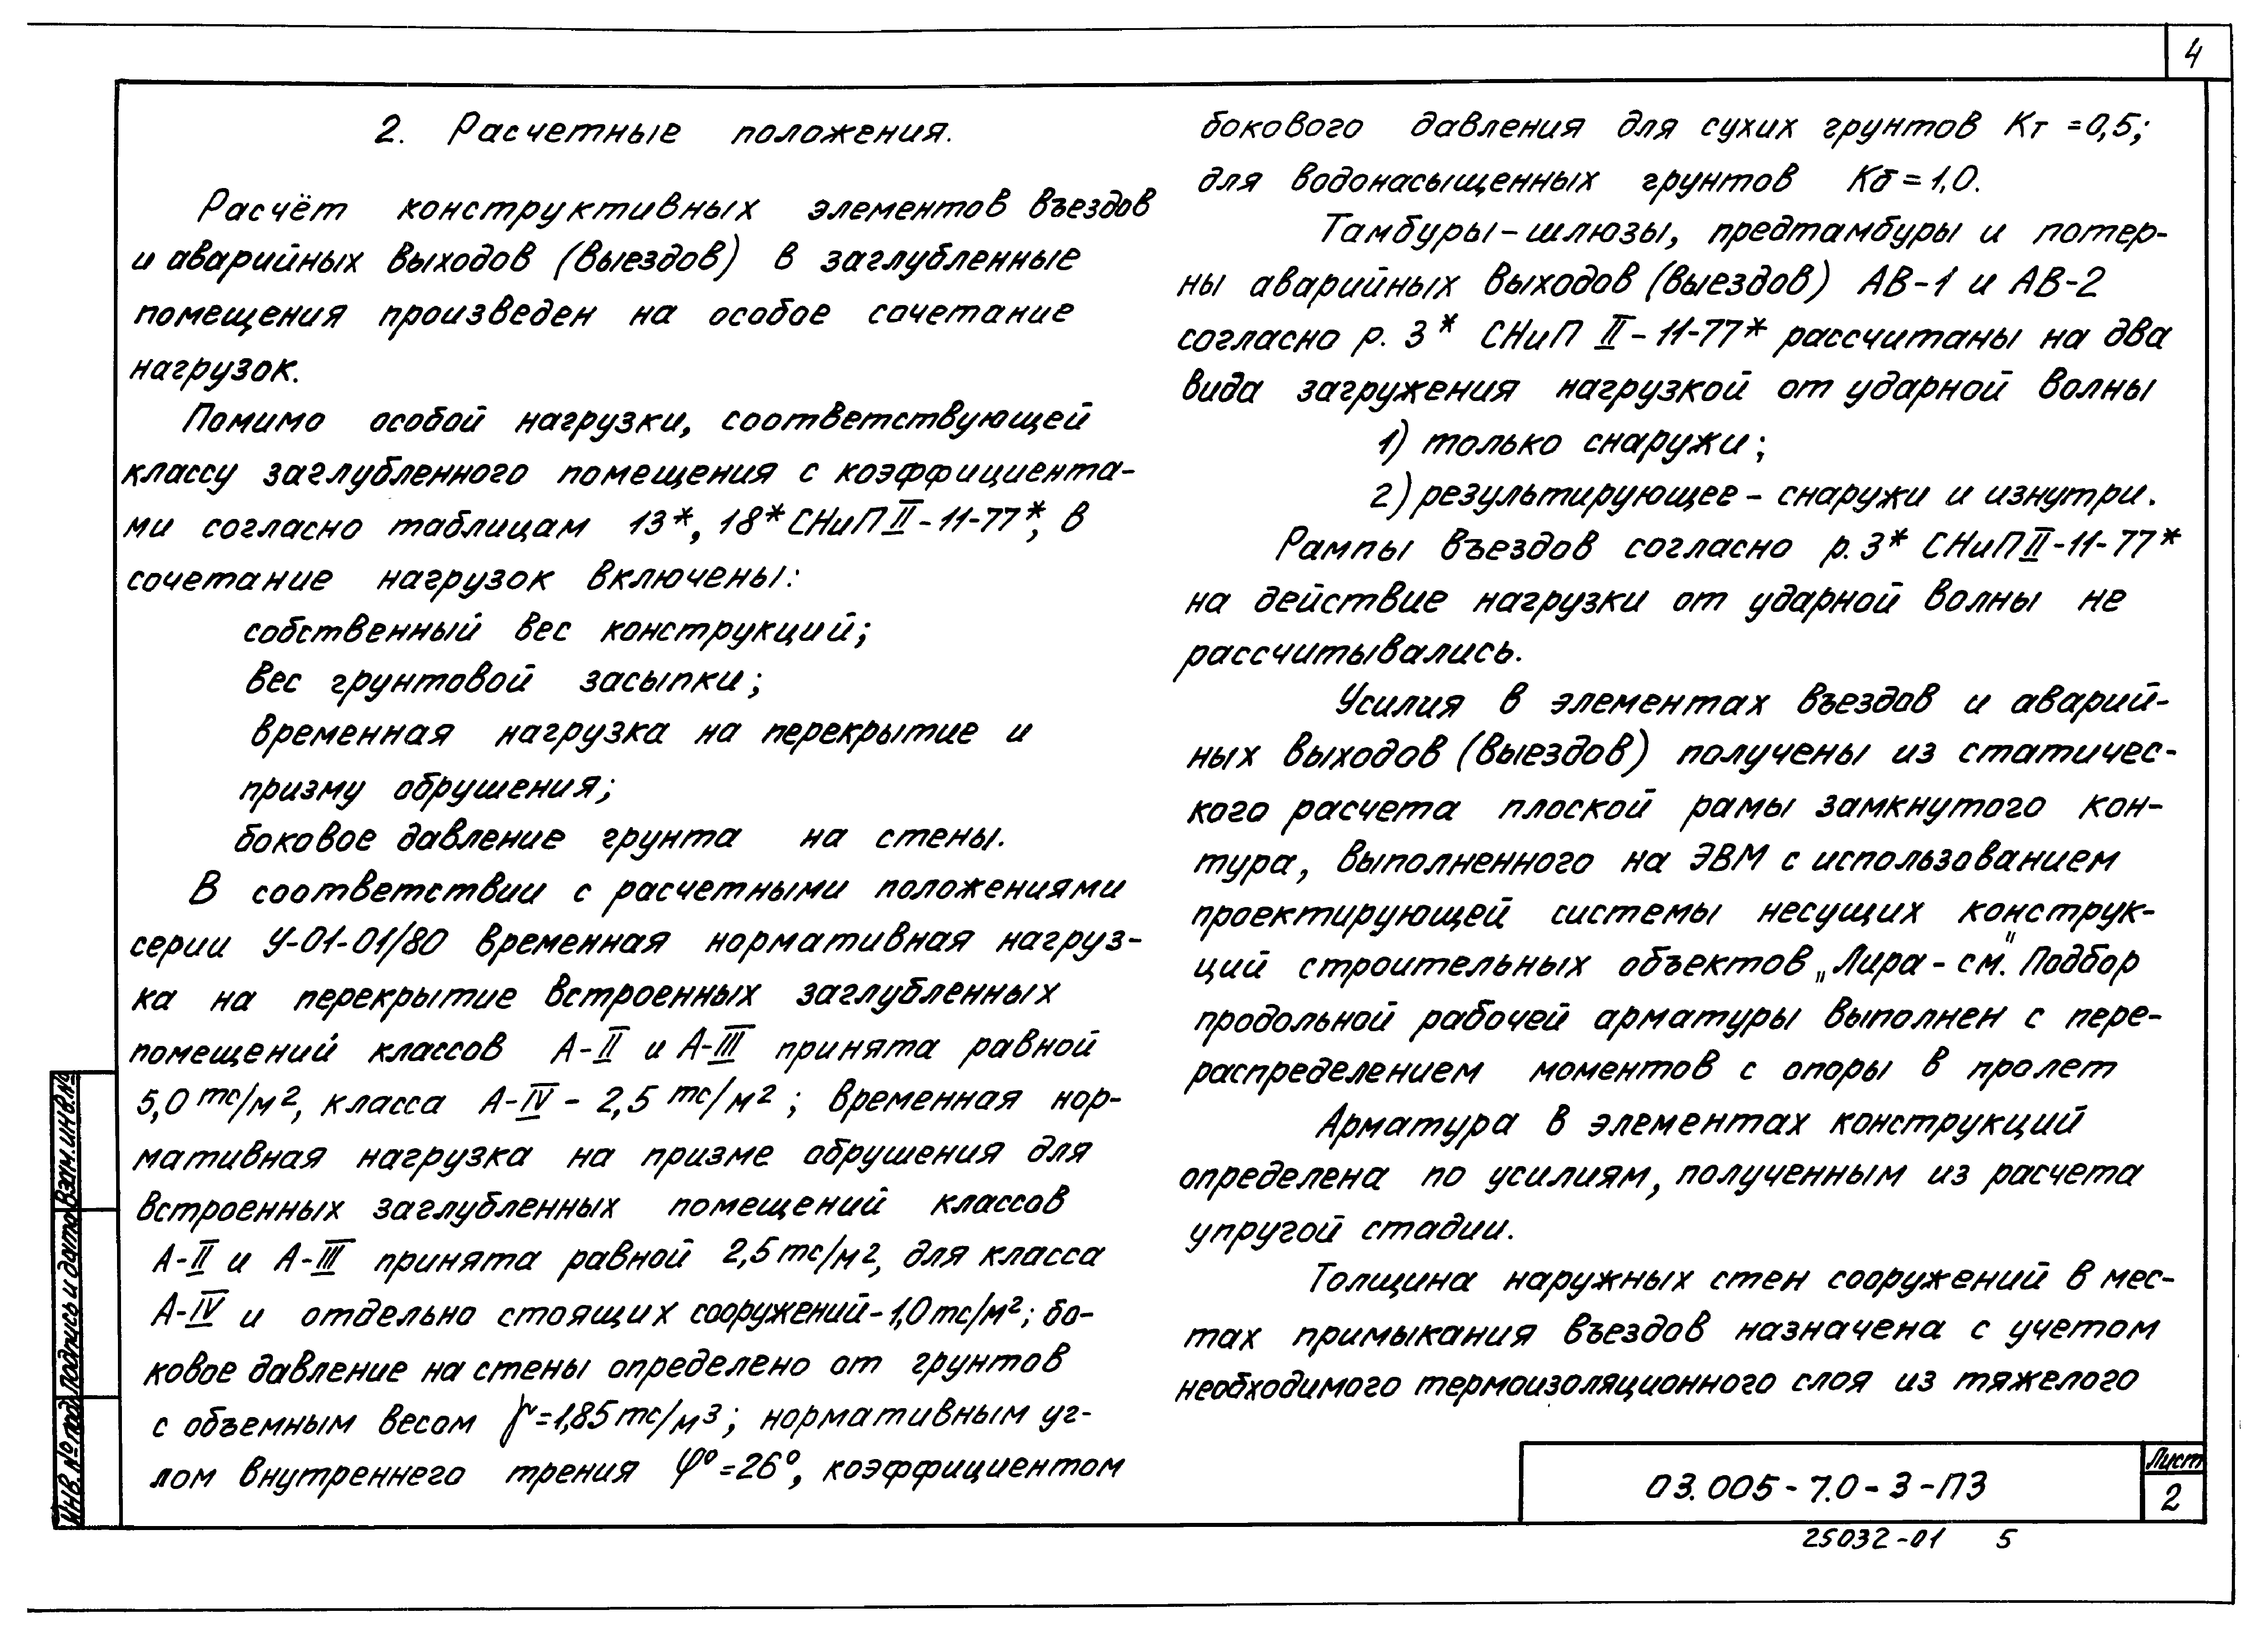 4
2. Расчетные положения.
Расчёт конструктивных элементов въездов
и аварийных выходов (выездов) в заглубленные
помещения произведен на особое сочетание
нагрузок.
Помимо особой нагрузки, соответствующей
классу заглубленного помещения с коэффициента-
ми согласно таблицам 13*, 18* СНиП II-11-77*, в
сочетание нагрузок включены:
собственный вес конструкций;
вес грунтовой засыпки;
временная нагрузка на перекрытие и
призму обрушения;
боковое давление грунта на стены.
В соответствии с расчетными положениями
серии У-01-01/80 временная нормативная нагруз-
ка на перекрытие встроенных заглубленных
помещений классов А-II и А-III принята равной
5,0 тс/м², класса А-IV - 2,5 тс/м²; временная нор-
мативная нагрузка на призме обрушения для
встроенных заглубленных помещений классов
А-II и А-III принята равной 2,5 тс/м², для класса
А-IV и отдельно стоящих сооружений - 1,0 тс/м²; бо-
ковое давление на стены определено от грунтов
с объемным весом γ=1,85 тс/м³; нормативным уг-
лом внутреннего трения φ°=26°, коэффициентом
бокового давления для сухих грунтов Кт =0,5;
для водонасыщенных грунтов Кб=1,0.
Тамбуры-шлюзы, предтамбуры и потер-
ны аварийных выходов (выездов) АВ-1 и АВ-2
согласно р. 3* СНиП II-11-77* рассчитаны на два
вида загружения нагрузкой от ударной волны
1) только снаружи;
2) результирующее - снаружи и изнутри.
Рампы въездов согласно р. 3* СНиП II-11-77*
на действие нагрузки от ударной волны не
рассчитывались.
Усилия в элементах въездов и аварий-
ных выходов (выездов) получены из статичес-
кого расчета плоской рамы замкнутого кон-
тура, выполненного на ЭВМ с использованием
проектирующей системы несущих конструк-
ций строительных объектов „Лира-см". Подбор
продольной рабочей арматуры выполнен с пере-
распределением моментов с опоры в пролет
Арматура в элементах конструкций
определена по усилиям, полученным из расчета
упругой стадии.
Толщина наружных стен сооружений в мес-
тах примыкания въездов назначена с учетом
необходимого термоизоляционного слоя из тяжелого
Инв. № подл.
Подпись и дата
Взам. инв. №
03.005-7.0-3-ПЗ
Лист
2
25032-01 5